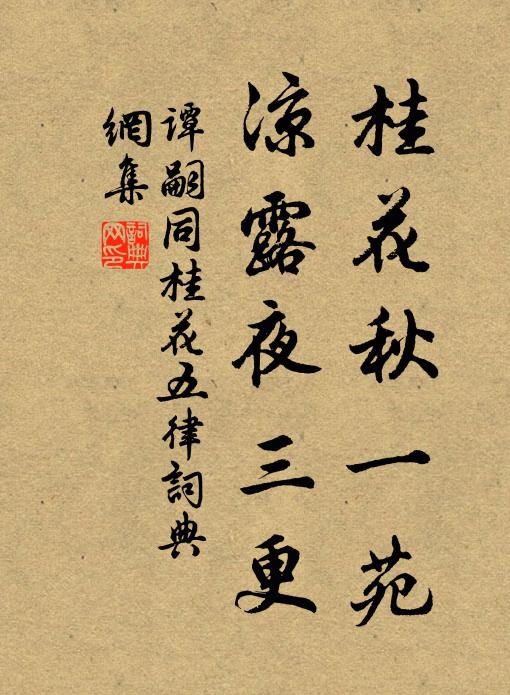 桂花秋一苑
凉露夜三更
谭嗣同桂花五律詞典
網集
詞典
网印